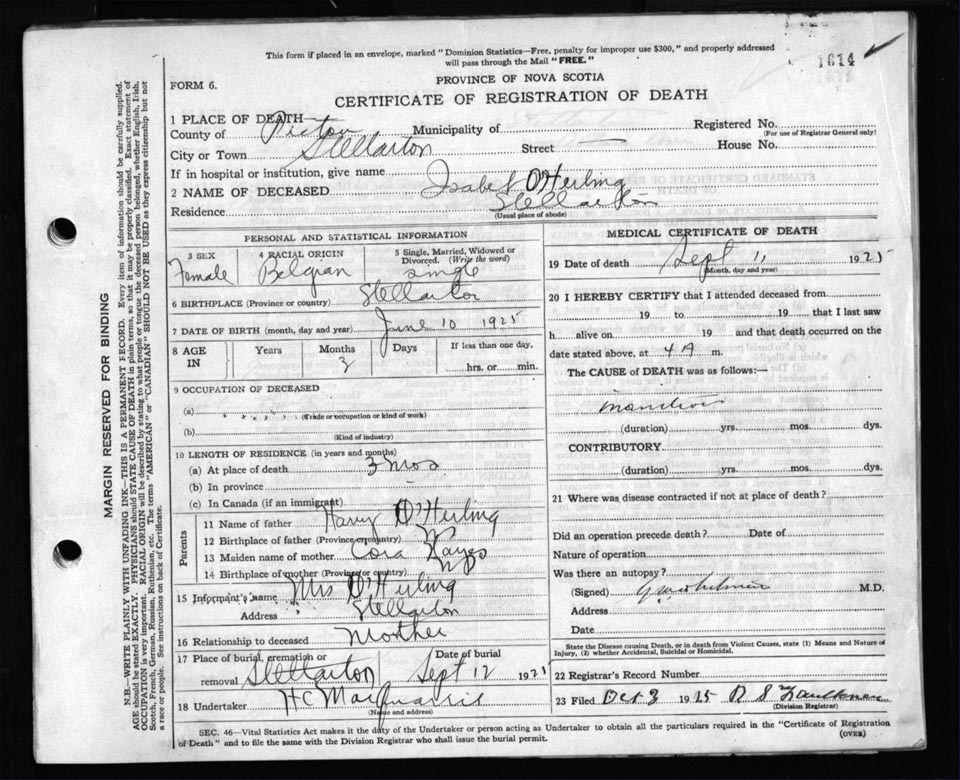 This form if placed in an envelope, marked "Dominion Statistics—Free, penalty for improper use $300," and properly addressed
will pass through the Mail "FREE."
1614
FORM 6.
PROVINCE OF NOVA SCOTIA
CERTIFICATE OF REGISTRATION OF DEATH
1 PLACE OF DEATH—
County of Pictou Municipality of Registered No.
(For use of Registrar General only)
City or Town Stellarton Street House No.
If in hospital or institution, give name
2 NAME OF DECEASED Isabel O'Herling
Residence Stellarton
(Usual place of abode)
PERSONAL AND STATISTICAL INFORMATION
3 SEX 4 RACIAL ORIGIN 5 Single, Married, Widowed or Divorced. (Write the word)
Female Belgian single
6 BIRTHPLACE (Province or country) Stellarton
7 DATE OF BIRTH (month, day and year) June 10 1925
8 AGE IN Years Months Days If less than one day,
3 hrs. or min.
9 OCCUPATION OF DECEASED
(a)
(Trade or occupation or kind of work)
(b)
(Kind of industry)
10 LENGTH OF RESIDENCE (in years and months)
(a) At place of death 3 mos
(b) In province
(c) In Canada (if an immigrant)
Parents
11 Name of father Harry O'Herling
12 Birthplace of father (Province or country)
13 Maiden name of mother Cora Hayes
14 Birthplace of mother (Province or country) NS
15 Informant's name Mrs O'Herling
Address Stellarton
16 Relationship to deceased Mother
17 Place of burial, cremation or removal Stellarton Date of burial Sept 12 1925
18 Undertaker H C MacQuarrie
(Name and address)
MEDICAL CERTIFICATE OF DEATH
19 Date of death Sept 11 1925
(Month, day and year)
20 I HEREBY CERTIFY that I attended deceased from
19 to 19 that I last saw
h alive on 19 and that death occurred on
date stated above, at 4 A m.
The CAUSE of DEATH was as follows:—
(duration) yrs. mos. dys.
CONTRIBUTORY
(duration) yrs. mos. dys.
21 Where was disease contracted if not at place of death?
Did an operation precede death? Date of
Nature of operation
Was there an autopsy?
(Signed) M.D.
Address
Date
State the Disease causing Death, or in death from Violent Causes, state (1) Means and Nature of
Injury, (2) whether Accidental, Suicidal or Homicidal.
22 Registrar's Record Number
23 Filed Oct 3 1925 R S Faulkner
(Division Registrar)
SEC. 46—Vital Statistics Act makes it the duty of the Undertaker or person acting as Undertaker to obtain all the particulars required in the "Certificate of Registration
of Death" and to file the same with the Division Registrar who shall issue the burial permit.
(OVER)
MARGIN RESERVED FOR BINDING
N.B.—WRITE PLAINLY WITH UNFADING INK—THIS IS A PERMANENT RECORD. Every item of information should be carefully supplied.
AGE should be stated EXACTLY. PHYSICIANS should STATE CAUSE OF DEATH in plain terms, so that it may be properly classified. Exact statement of
OCCUPATION is very important. RACIAL ORIGIN will be described by stating to what people or tongue the deceased person belonged, whether English, Irish,
Scotch, French, German, Russian, Ruthenian, etc. The terms "AMERICAN" or "CANADIAN" SHOULD NOT BE USED as they express citizenship but not
a race or people. See instructions on back of Certificate.